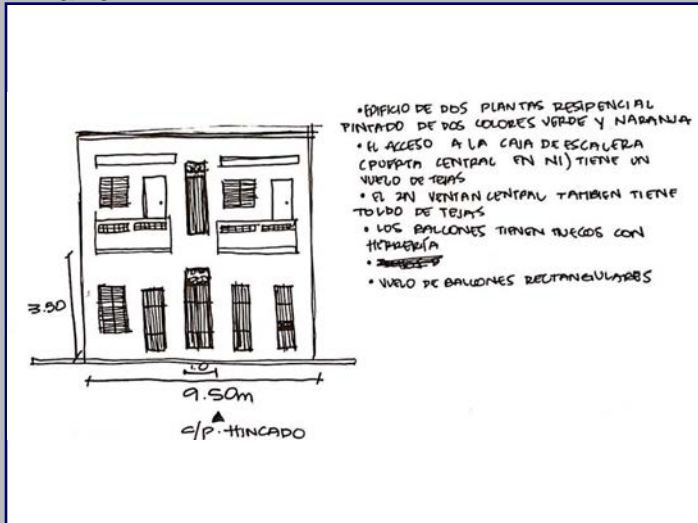 • EDIFICIO DE DOS PLANTAS RESIDENCIAL
PINTADO DE DOS COLORES VERDE Y NARANJA
• EL ACCESO A LA CAJA DE ESCALERA
(PUERTA CENTRAL EN N1) TIENE UN
VUELO DE TEJAS
• EL 2N VENTAN CENTRAL TAMBIEN TIENE
TOLDO DE TEJAS
• LOS BALCONES TIENEN HUECOS CON
HERRERÍA
• VUELO DE BALCONES RECTANGULARES
3.50
1.0
9.50m
C/P. HINCADO